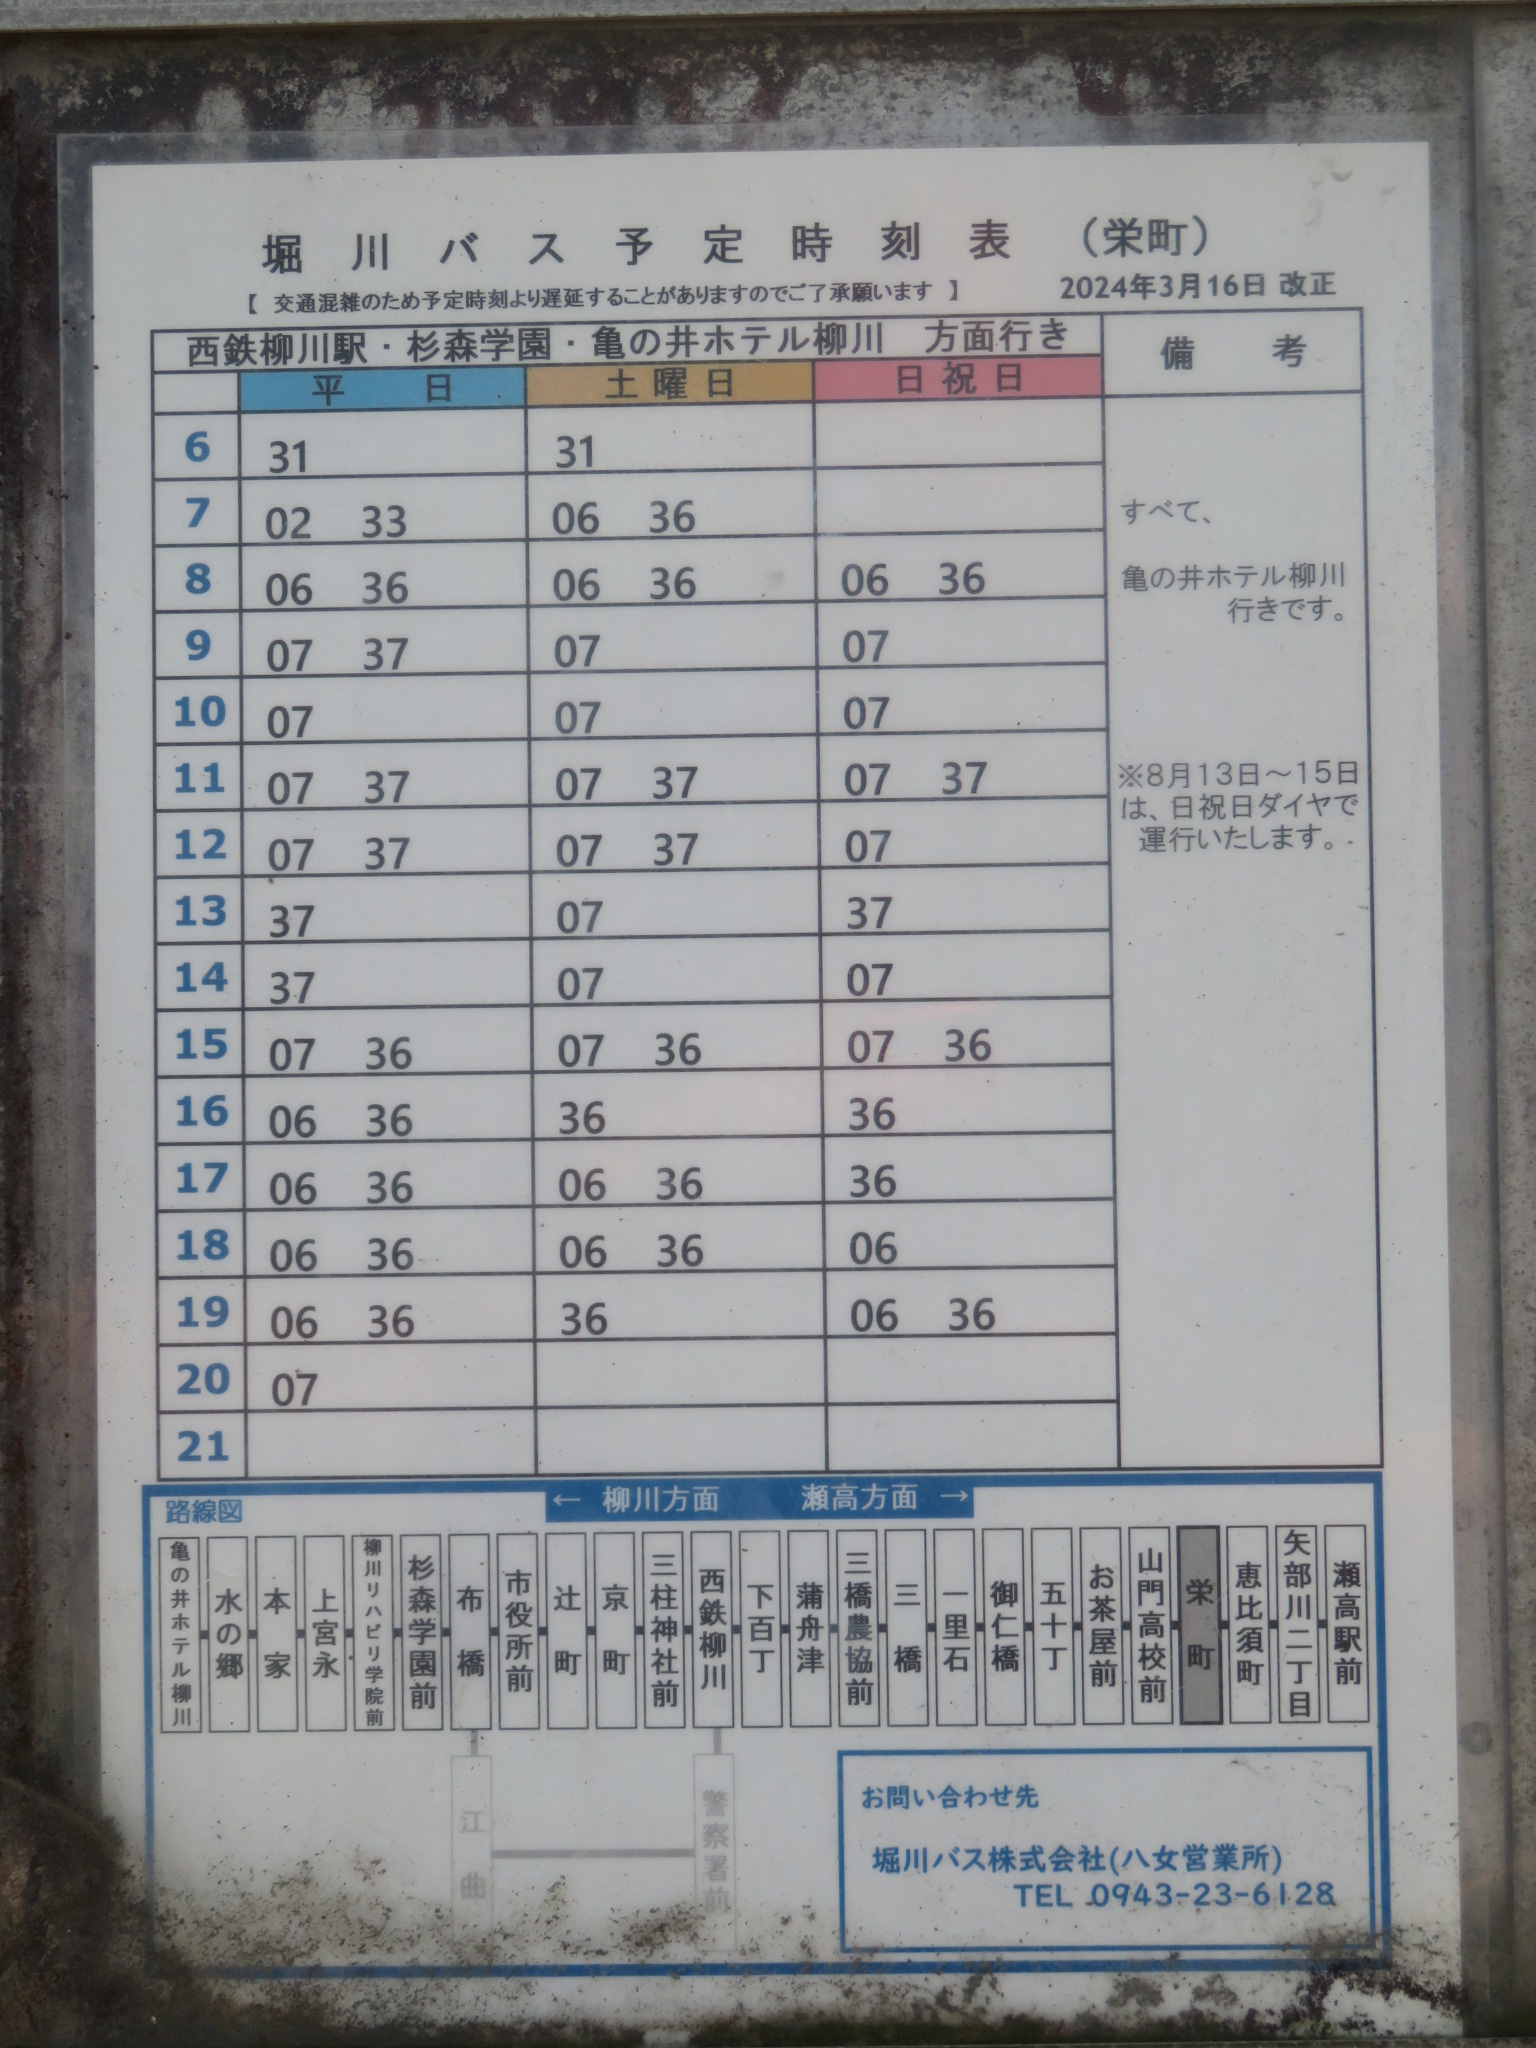 堀川バス予定時刻表 （栄町）
【 交通混雑のため予定時刻より遅延することがありますのでご了承願います 】 2024年3月16日 改正
西鉄柳川駅・杉森学園・亀の井ホテル柳川 方面行き 備 考
平 日 土 曜 日 日 祝 日
6 31 31
7 02 33 06 36
8 06 36 06 36 06 36
9 07 37 07 07
10 07 07 07
11 07 37 07 37 07 37
12 07 37 07 37 07
13 37 07 37
14 37 07 07
15 07 36 07 36 07 36
16 06 36 36 36
17 06 36 06 36 36
18 06 36 06 36 06
19 06 36 36 06 36
20 07
21
すべて、
亀の井ホテル柳川
行きです。
※8月13日～15日
は、日祝日ダイヤで
運行いたします。
路線図
← 柳川方面 瀬高方面 →
亀の井ホテル柳川
水の郷
本家
上宮永
柳川リハビリ学院前
杉森学園前
布橋
市役所前
辻町
京町
三柱神社前
西鉄柳川
下百丁
蒲舟津
三橋農協前
三橋
一里石
御仁橋
五十丁
お茶屋前
山門高校前
栄町
恵比須町
矢部川二丁目
瀬高駅前
江曲
警察署前
お問い合わせ先
堀川バス株式会社(八女営業所)
TEL 0943-23-6128